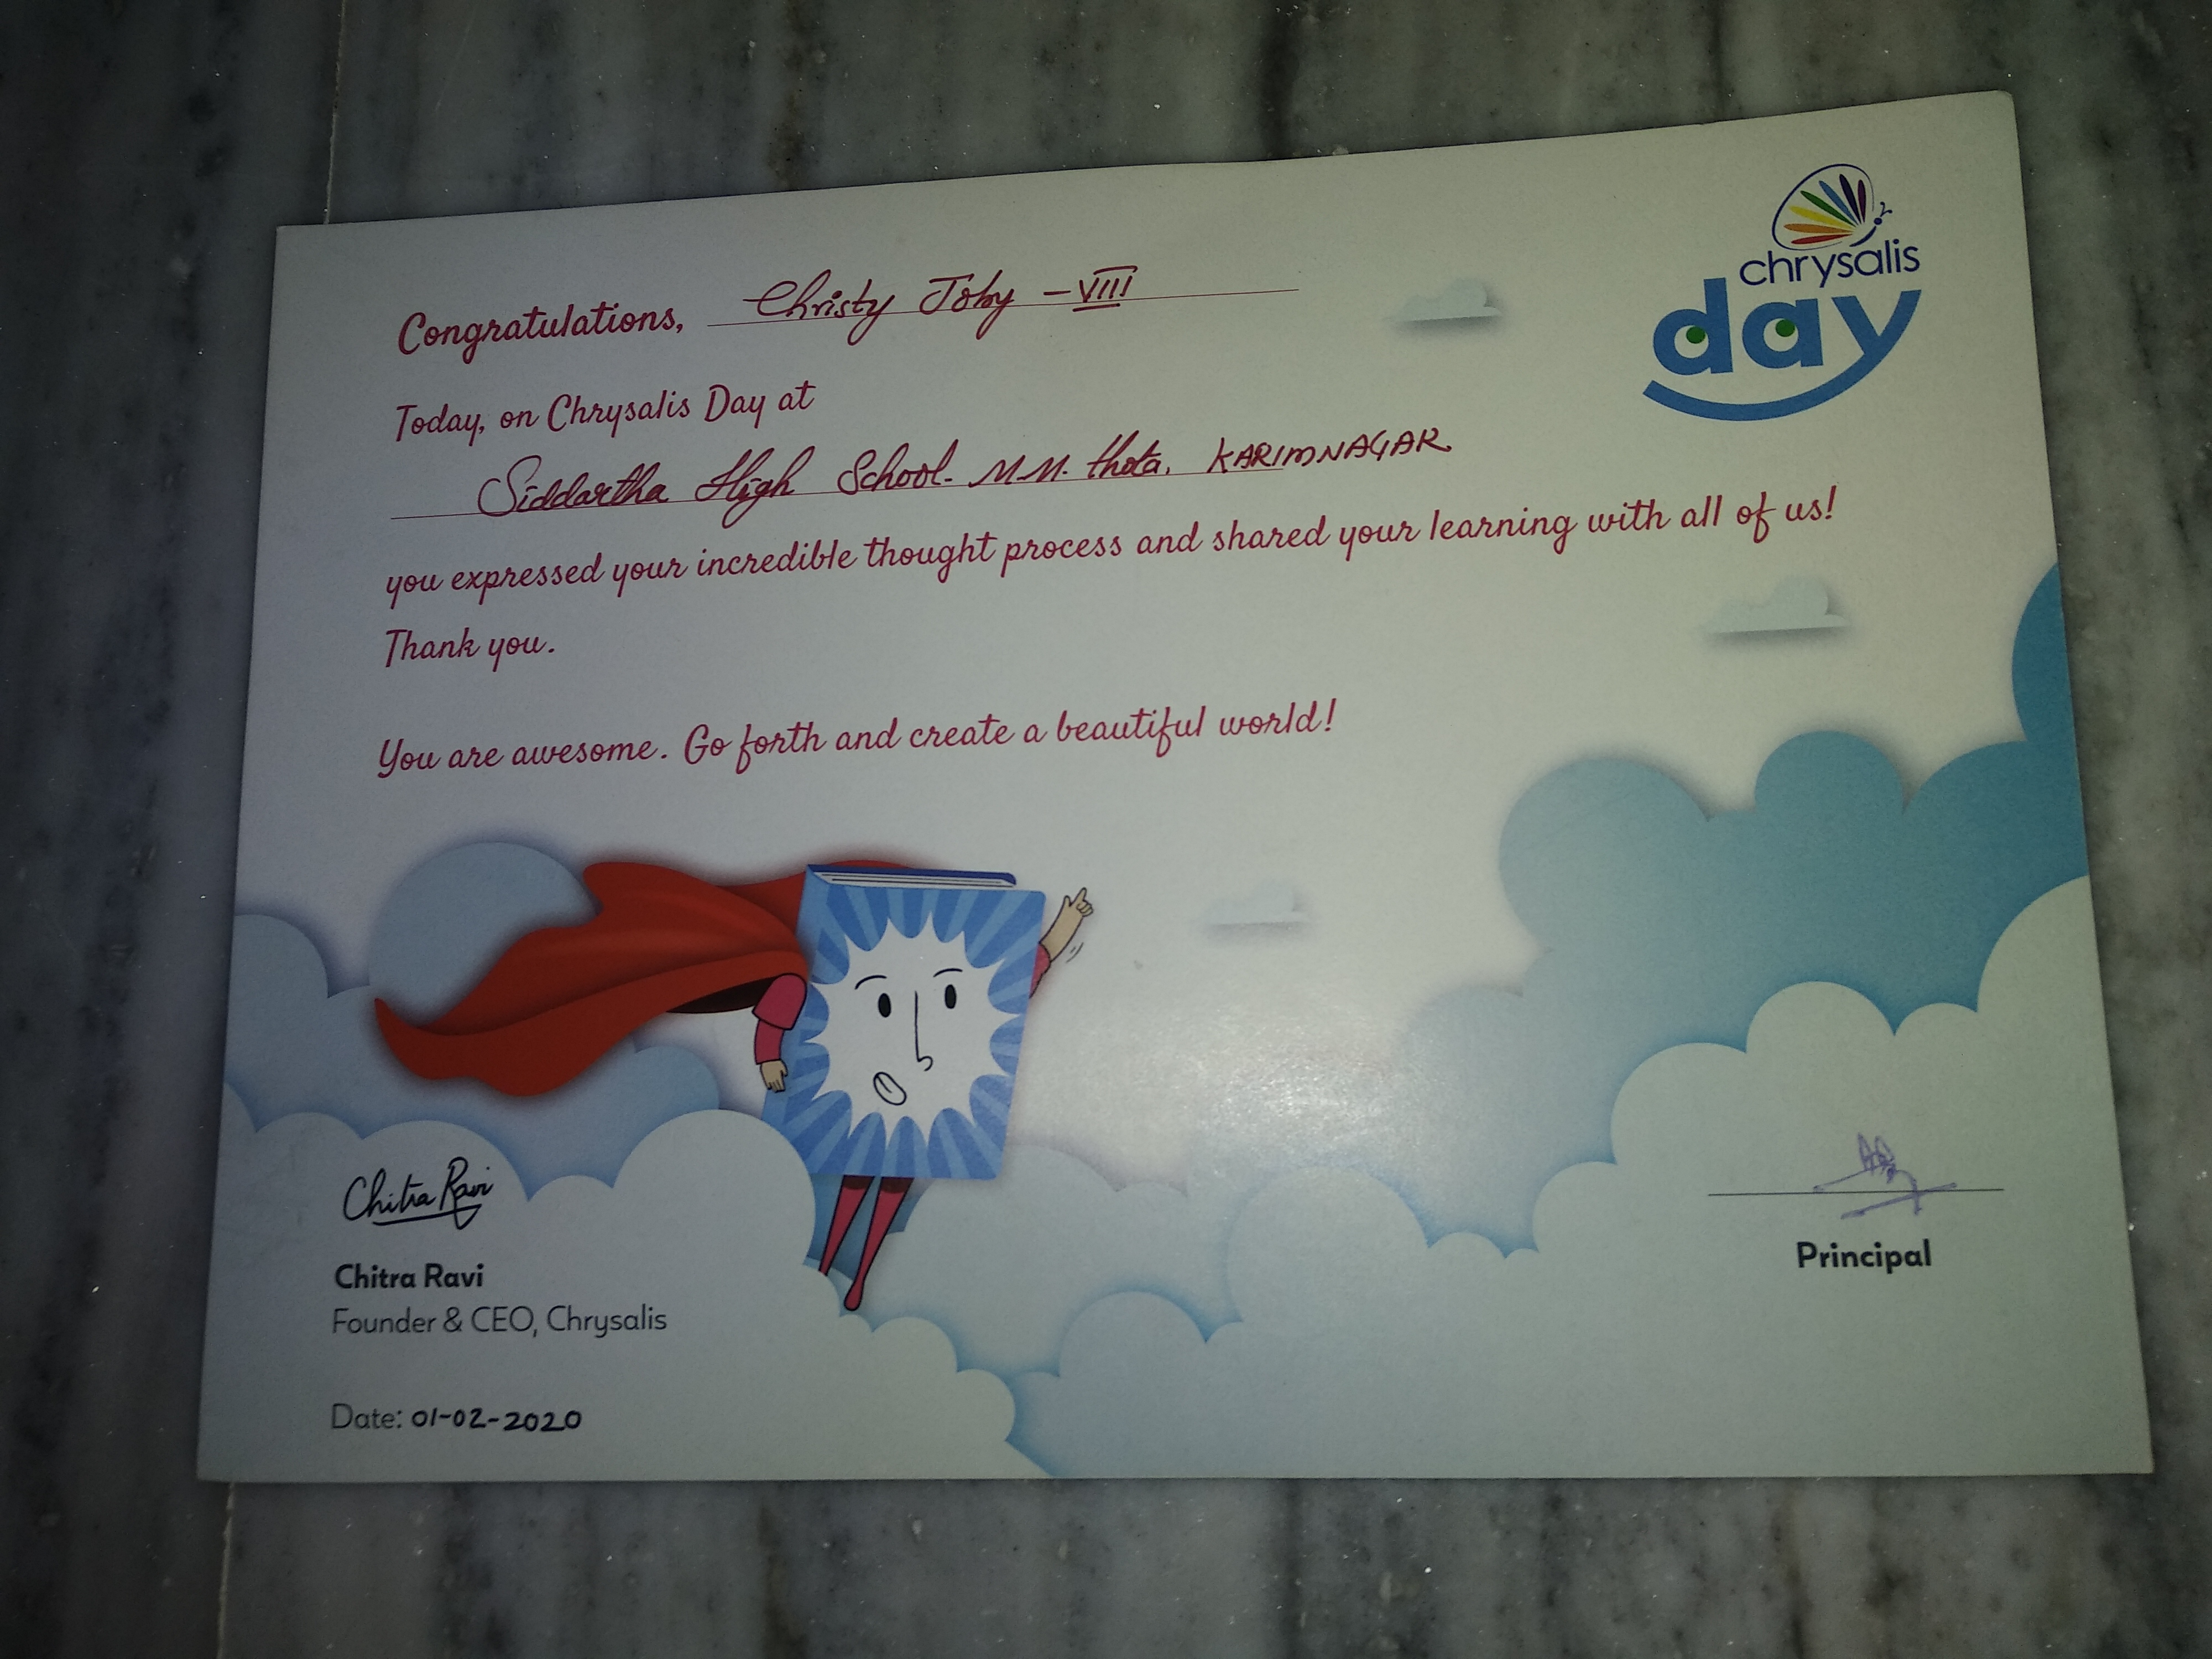 chrysalis
day
Congratulations, Christy Joby - VIII
Today, on Chrysalis Day at
Siddartha High School. M.M. thota. KARIMNAGAR
you expressed your incredible thought process and shared your learning with all of us!
Thank you.
You are awesome. Go forth and create a beautiful world!
Chitra Ravi
Chitra Ravi
Founder & CEO, Chrysalis
Date: 01-02-2020
Principal